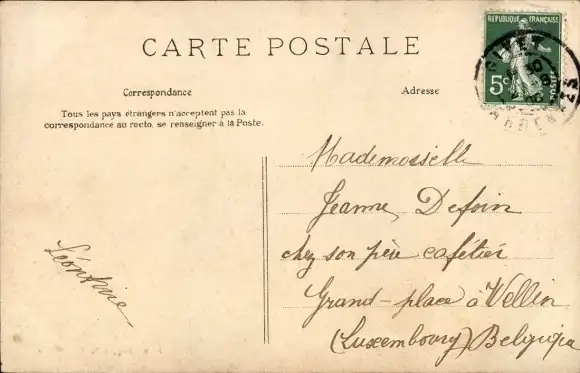 CARTE POSTALE
RÉPUBLIQUE FRANÇAISE
5c
POSTES
GIVET
ARDENNES
Correspondance
Adresse
Tous les pays étrangers n'acceptent pas la
correspondance au recto, se renseigner à la Poste.
Mademoiselle
Jeanne Defoin
chez son père cafétier
Grand-place à Wellin
(Luxembourg) Belgique
Léontine